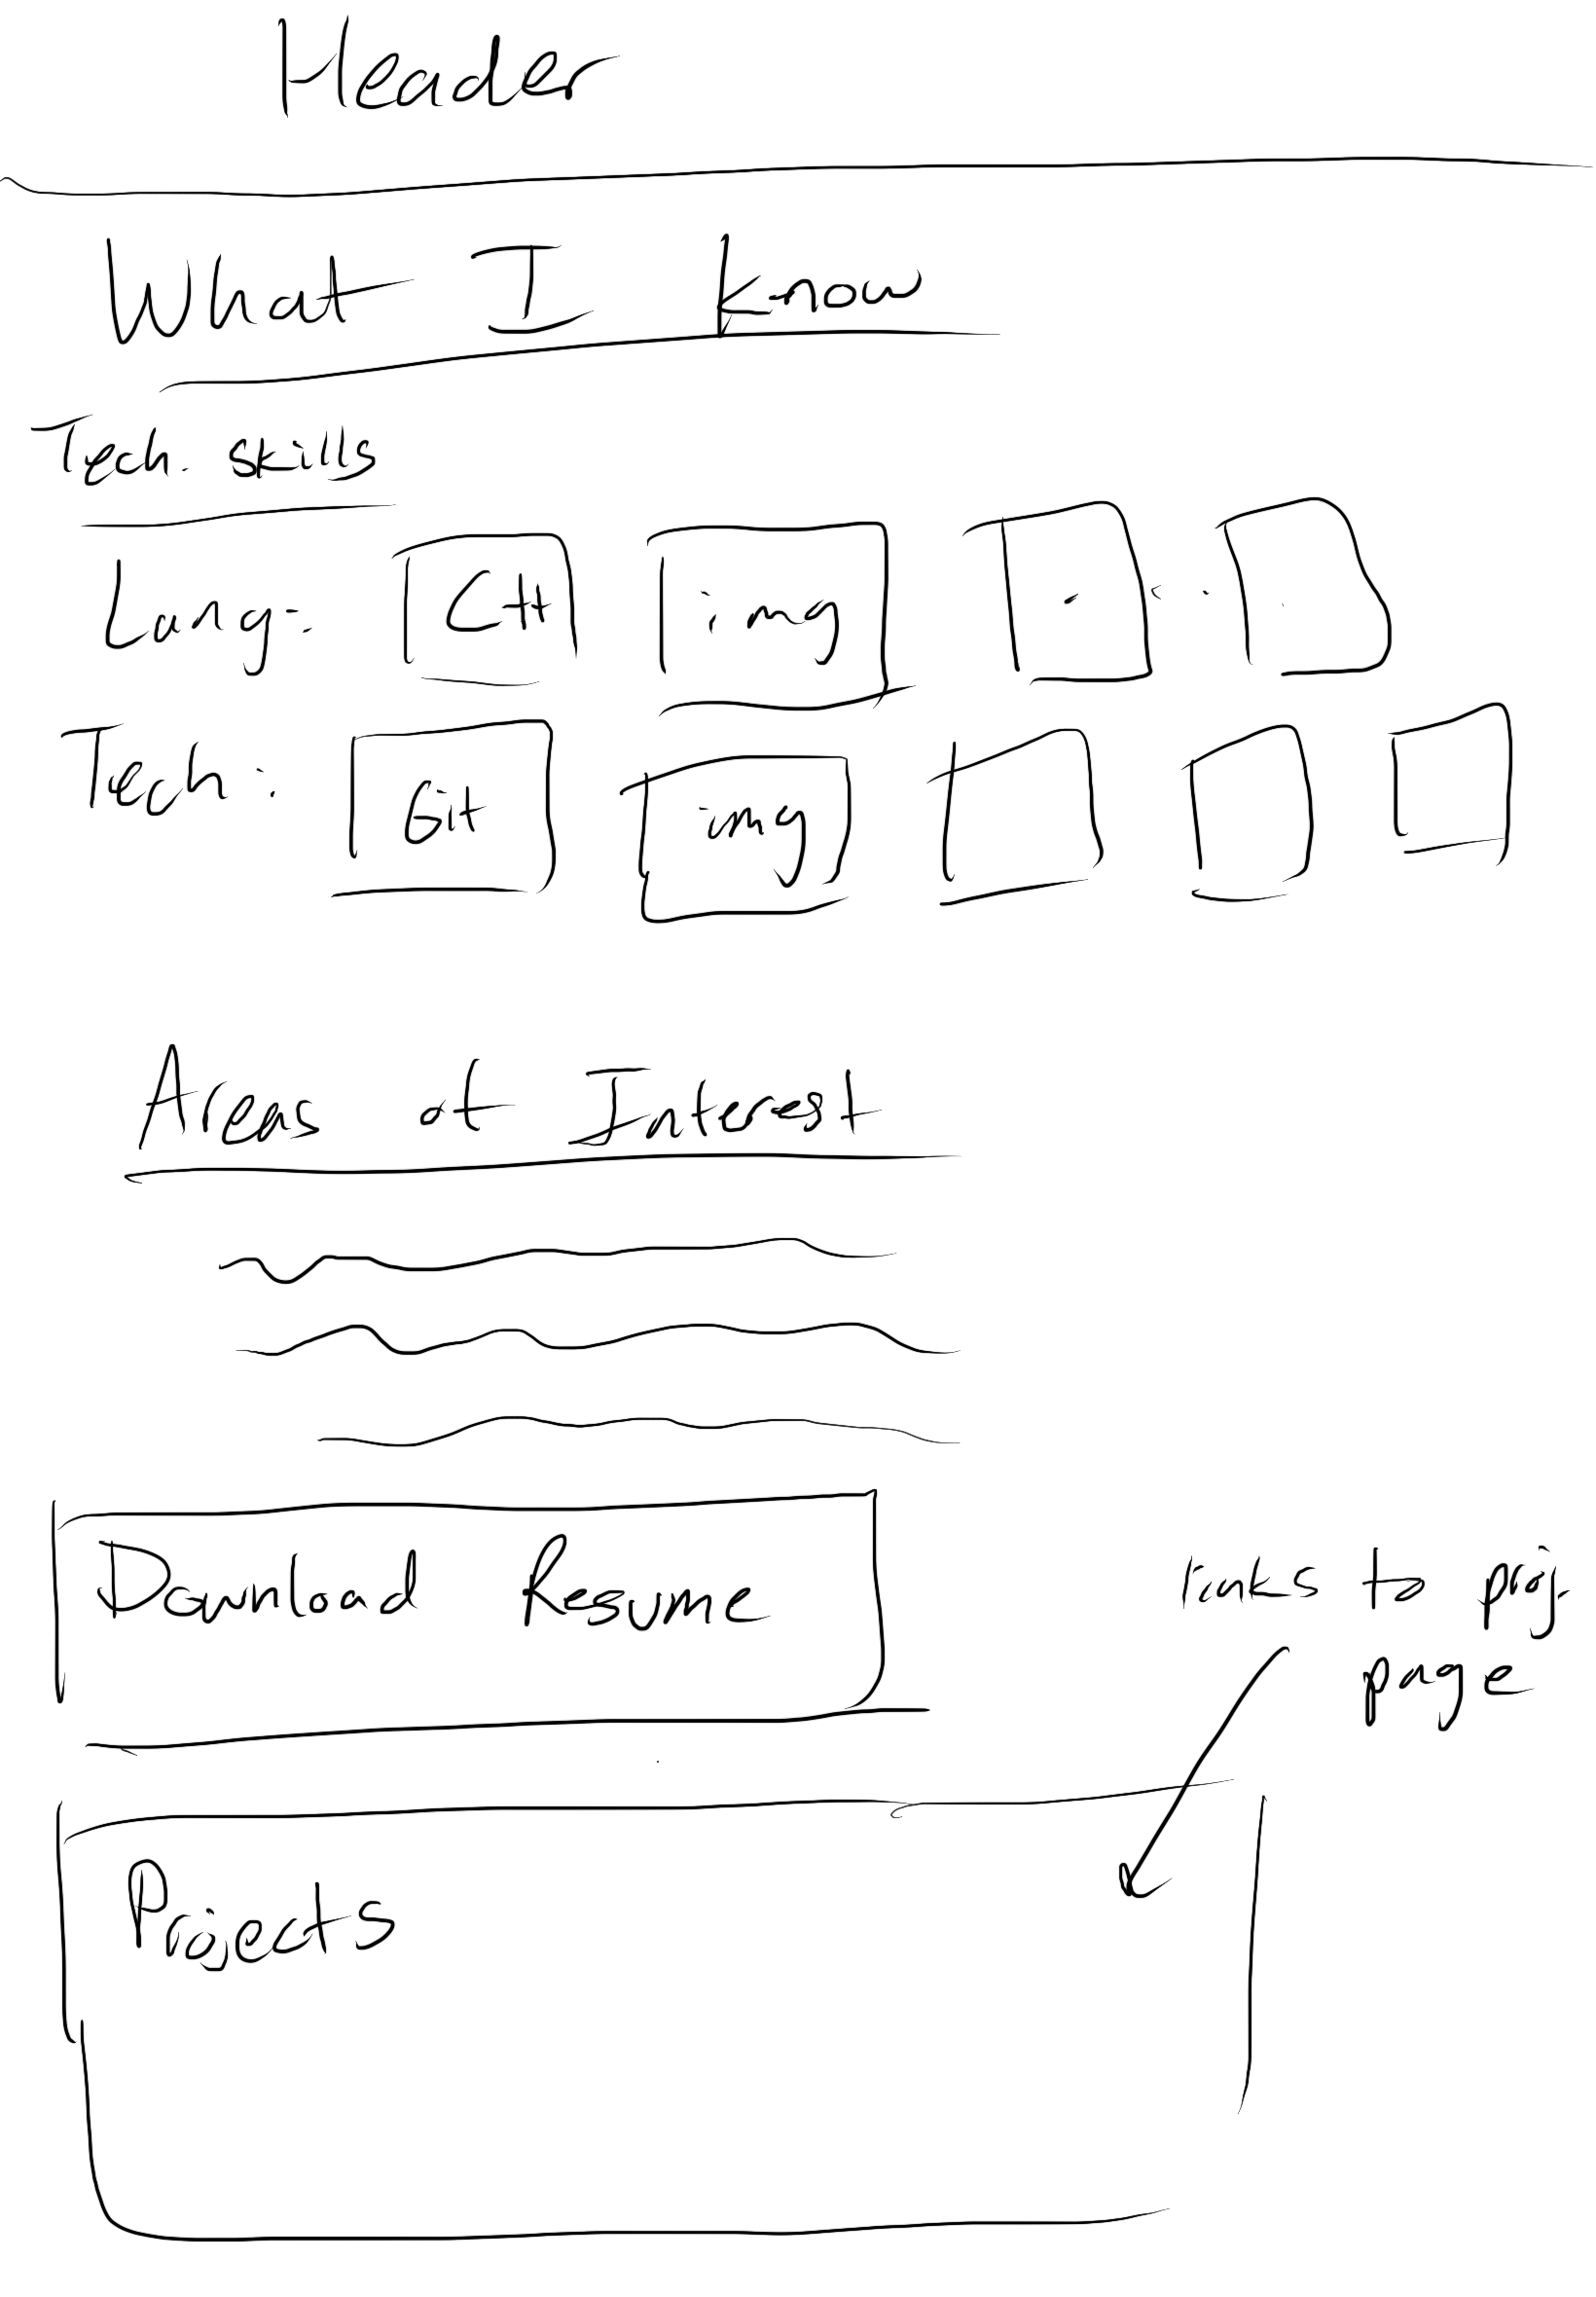 Header
What I know
Tech. skills
Lang: C++ img
Tech: Git img
Areas of Interest
Download Resume
links to proj.
page
Projects